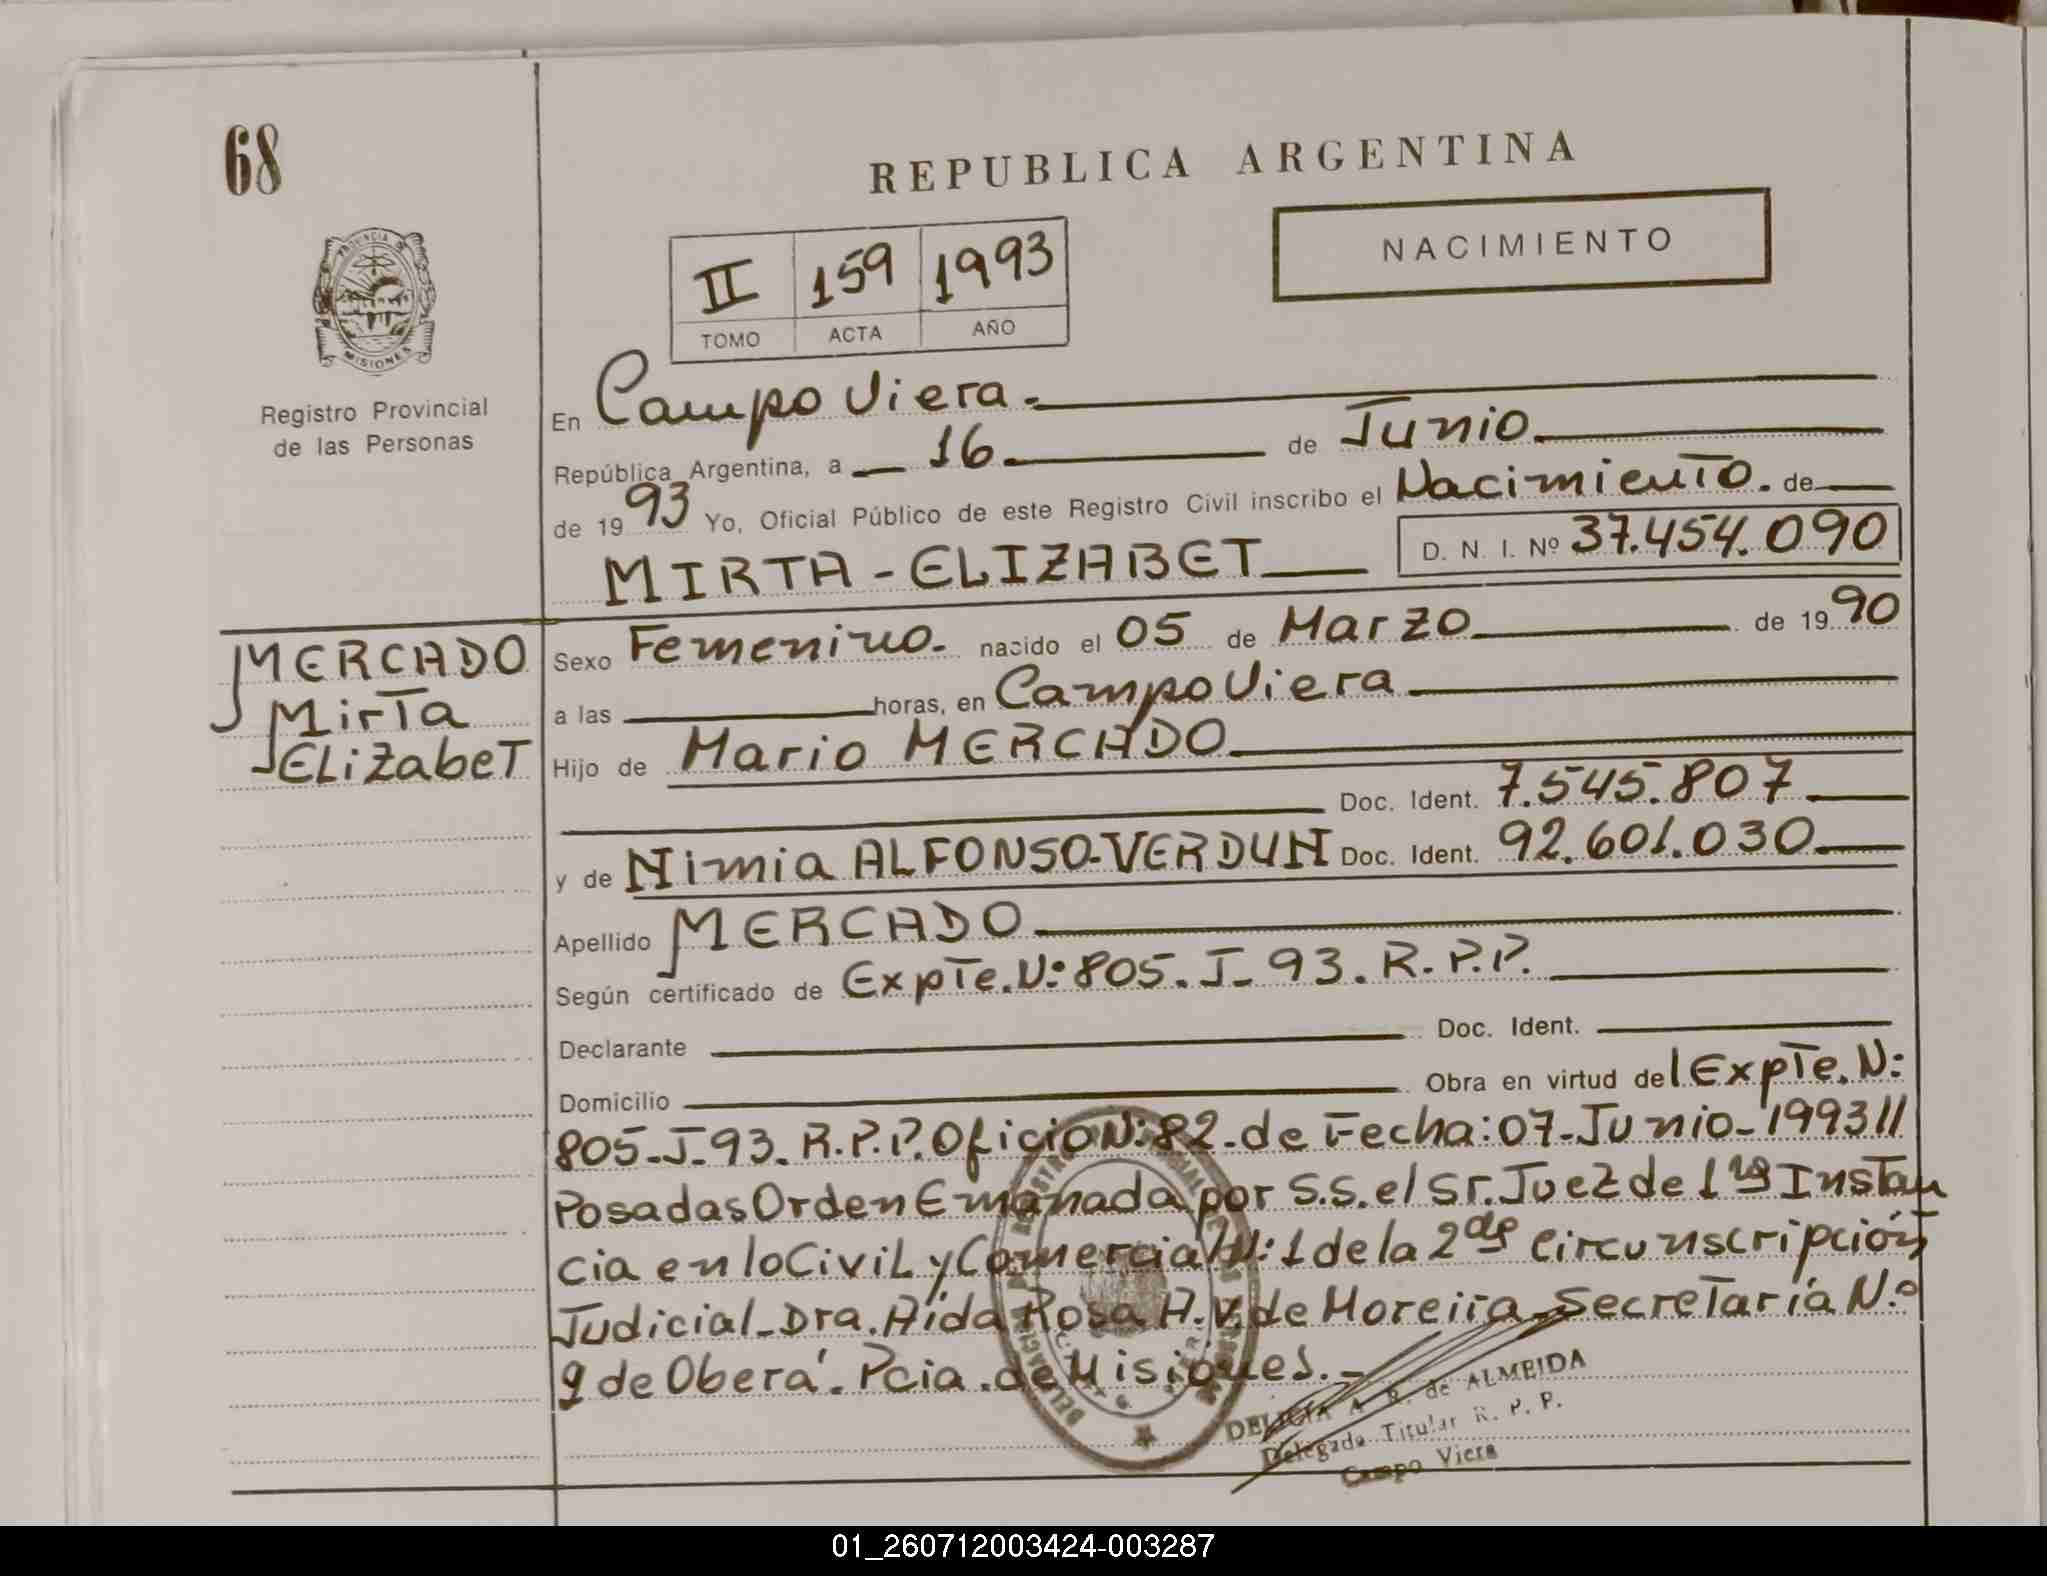 68
REPUBLICA ARGENTINA
NACIMIENTO
II 159 1993
TOMO ACTA AÑO
PROVINCIA DE
MISIONES
Registro Provincial
de las Personas
En Campo Viera.
República Argentina, a 16 de Junio
de 1993 Yo, Oficial Público de este Registro Civil inscribo el Nacimiento. de
MIRTA - ELIZABET D. N. I. Nº 37.454.090
MERCADO
Mirta
ELizabeT
Sexo Femenino. nacido el 05 de Marzo de 1990
a las horas, en Campo Viera
Hijo de Mario MERCADO
Doc. Ident. 7.545.807
y de Nimia ALFONSO-VERDUN Doc. Ident. 92.601.030
Apellido MERCADO
Según certificado de Expte. N: 805. J- 93. R. P.P.
Declarante Doc. Ident.
Domicilio Obra en virtud del Expte. N:
805-J-93. R.P.P. Oficio N: 82-de Fecha: 07-Junio-1993//
Posadas Orden Emanada por S.S. el Sr. Juez de 1ra Instan
cia en lo Civil y Comercial N: 1 de la 2da Circunscripción
Judicial-Dra. Aída Rosa A. V. de Moreira-Secretaría N.º
9 de Oberá. Pcia. de Misiones.-
DELICIA A. R. de ALMEIDA
Delegada Titular R. P. P.
Campo Viera
01_260712003424-003287